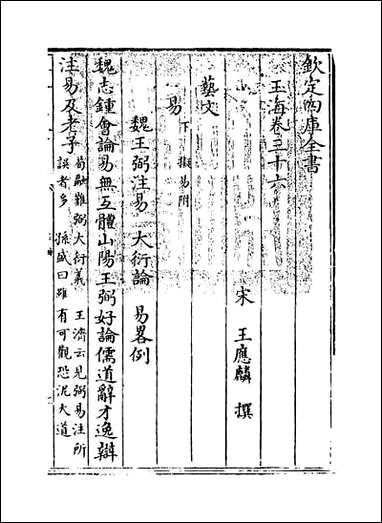 欽定四庫全書
玉海卷三十六
宋 王應麟 撰
藝文
易下 擬易附
魏王弼注易 大衍論 易畧例
魏志鍾會論易無互體山陽王弼好論儒道辭才逸辯
注易及老子荀融難弼大衍義 王濟云見弼易注所
誤者多 孫盛曰雖有可觀恐泥大道